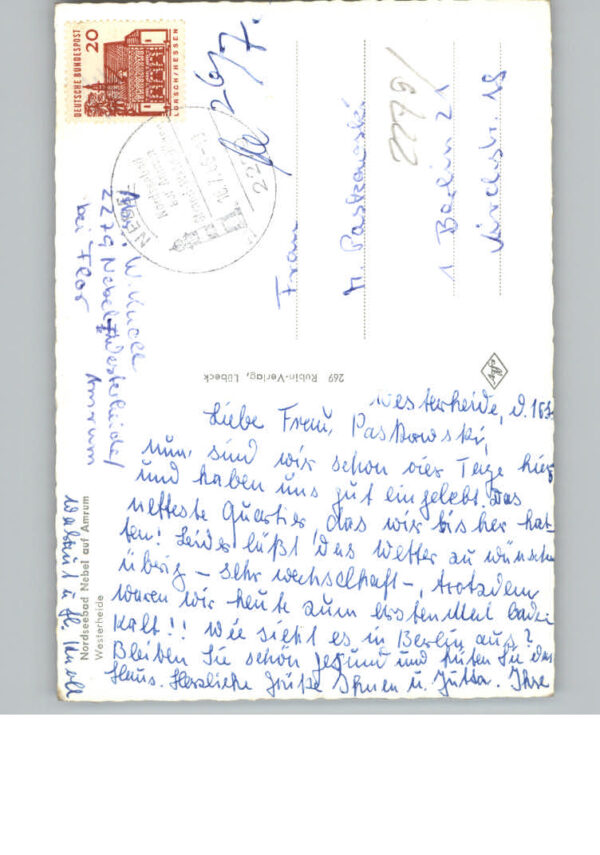 20
DEUTSCHE BUNDESPOST
LORSCH/HESSEN
NEBEL
2279 Nebel/Westerheide/
bei Flor
Amrum
Frau
M. Paskowski
1 Berlin 21
2279/
269 Rubin-Verlag, Lübeck
Nordseebad Nebel auf Amrum
Westerheide
Westerheide, d.
Liebe Frau Paskowski,
nun sind wir schon vier Tage hier
und haben uns gut eingelebt. Das
netteste Quartier, das wir bisher hat-
ten! Leider läßt das Wetter zu wünschen
übrig – sehr wechselhaft –, trotzdem
waren wir heute zum ersten Mal baden
Kalt!! Wie sieht es in Berlin aus?
Bleiben Sie schön gesund und hüten Sie das
Haus. Herzliche Grüße Ihnen u. Jutta. Ihre